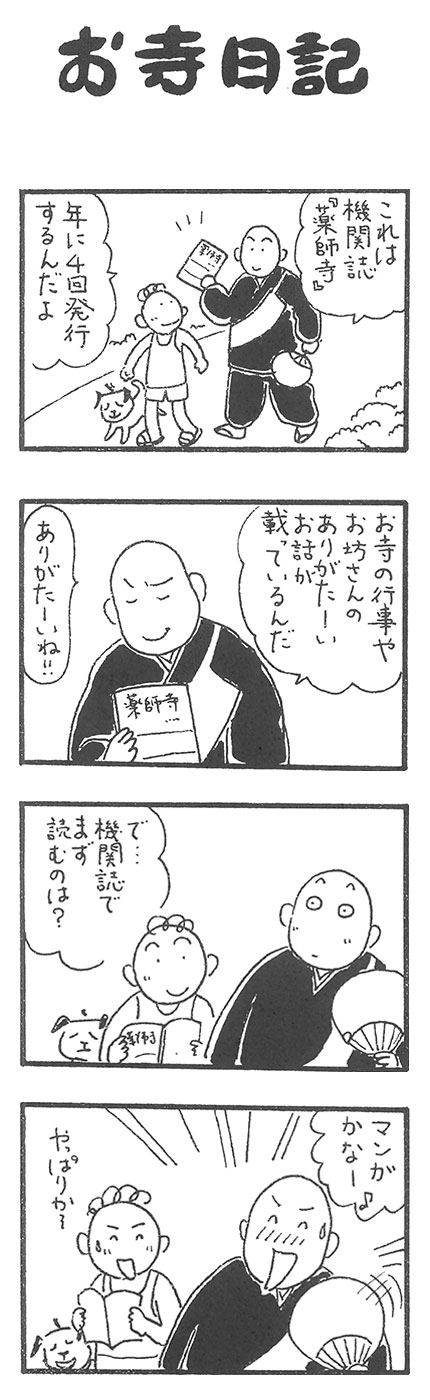 お寺日記
これは
機関誌
『薬師寺』
薬師寺
年に4回発行
するんだよ
お寺の行事や
お坊さんの
ありがたーい
お話が
載っているんだ
薬師寺
ありがたーいね!!
で…
機関誌で
まず
読むのは?
薬師寺
マンガ
かなー♪
やっぱりかー